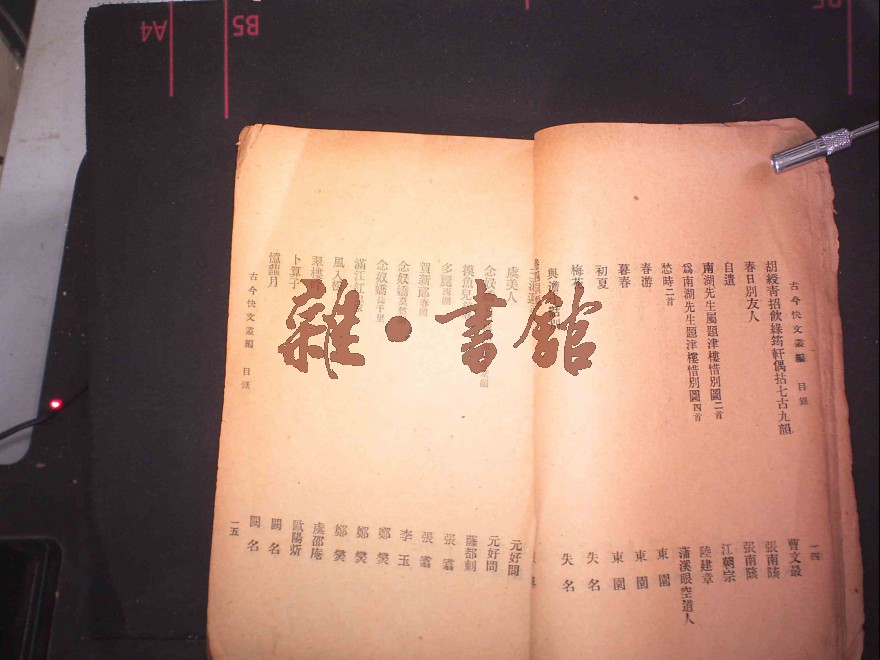 古今快文叢編 目錄
一四
胡綬青招飲綠筠軒偶拈七古九韻
曹文最
春日別友人
張南陔
自遣
張南陔
南湖先生屬題津樓惜別圖二首
江朝宗
爲南湖先生題津樓惜別圖四首
陸建章
愁時二首
蒲溪眼空道人
春游
東園
暮春
東園
初夏
東園
梅花
失名
失名
虞美人
元好問
念奴
元好問
摸魚兒
薩都剌
多麗
張翥
賀新郎
張翥
念奴嬌
李玉
念奴嬌
鄭燮
滿江紅
鄭燮
風入松
鄭燮
翠樓吟
虞邵庵
卜算子
歐陽炘
憶蘿月
闕名
闕名
古今快文叢編 目錄
一五
雜·書館
A4
B5
B5